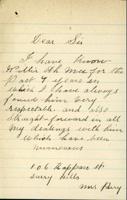 Dear Sir
I have know
Willie Ah Mee for the
Past 7 years in
which I have always
found him very
respectable and also
straight-forward in all
my dealings with him
which have been
numerous
106 St
Surry Hills
Mrs